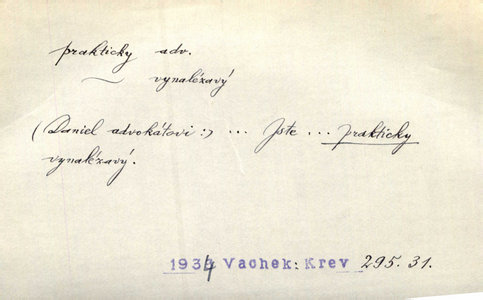 prakticky adv.
~ vynalézavý
(Daniel advokátovi:) ... Jste ... prakticky
vynalézavý.
1934 Vachek: Krev 295.31.